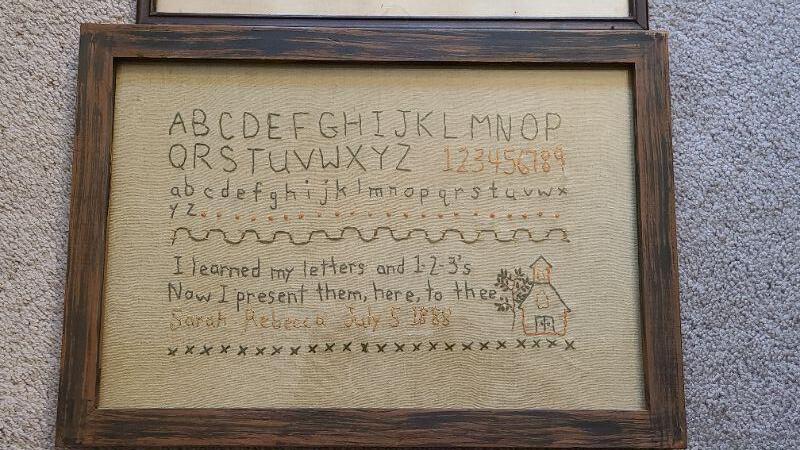 ABCDEFGHIJKLMNOP
QRSTUVWXYZ 123456789
abcdefghijklmnopqrstuvwx
yz
I learned my letters and 1-2-3's
Now I present them, here, to thee.
Sarah Rebecca July 5 1888